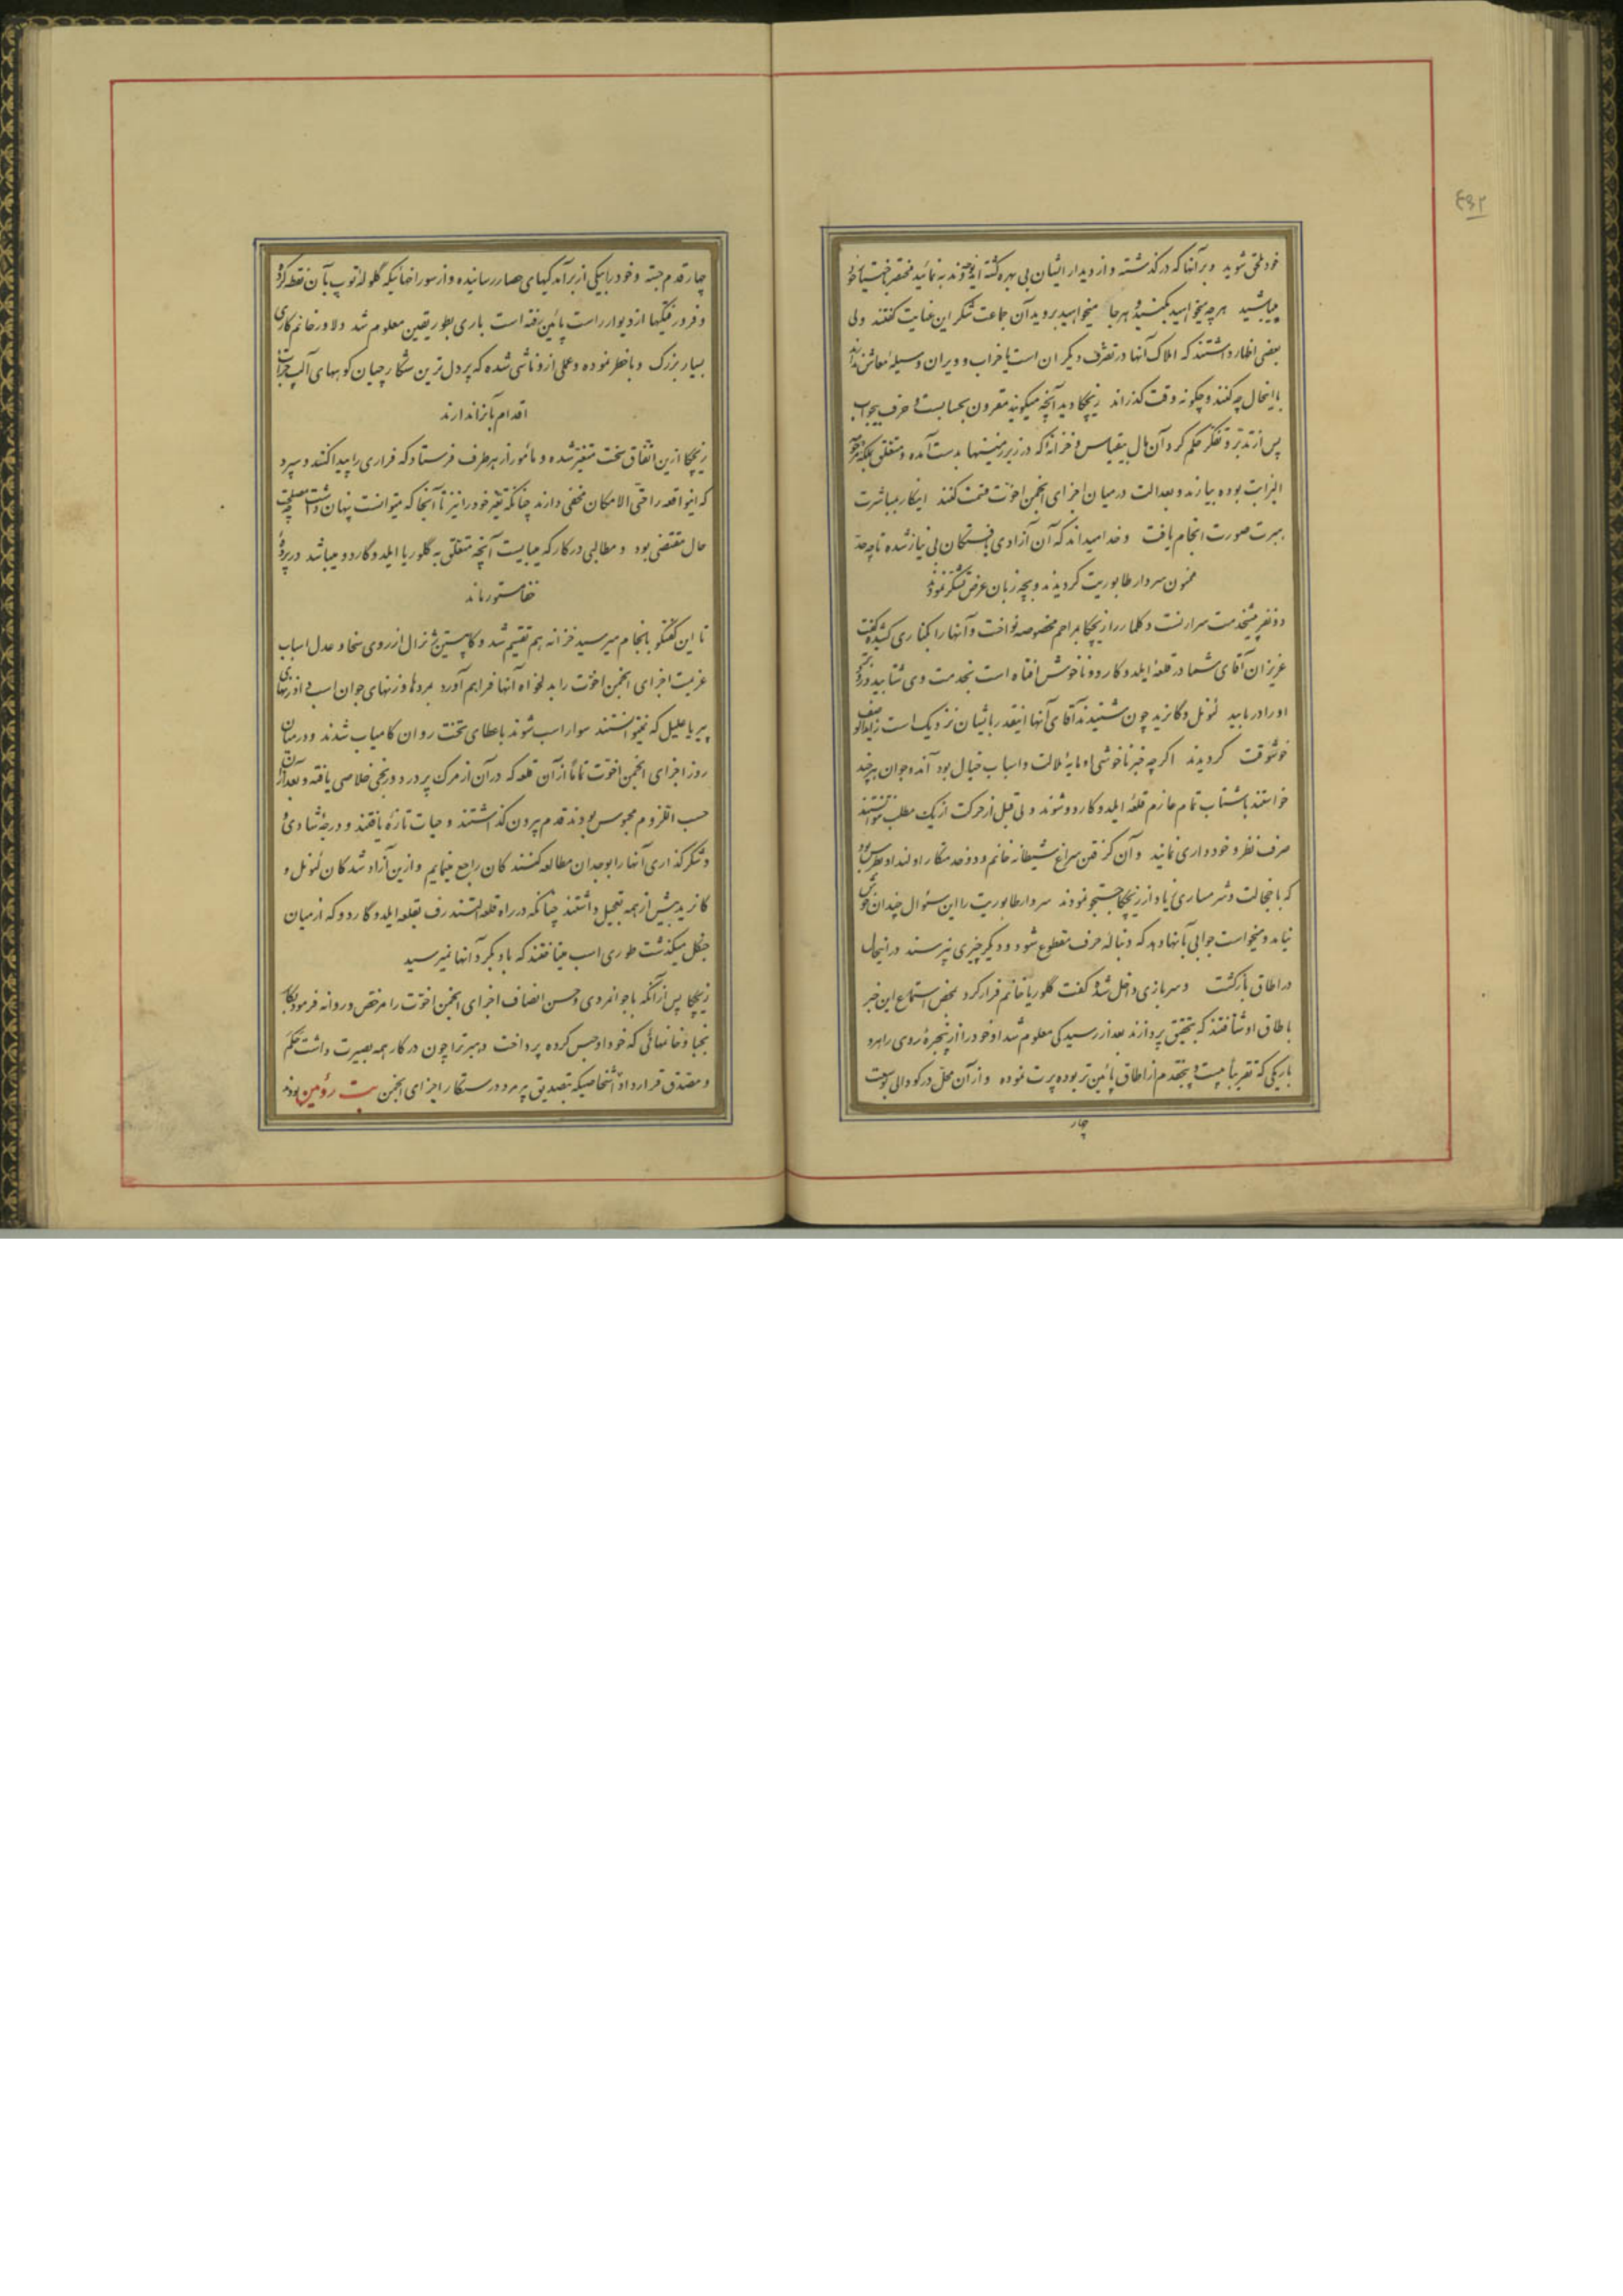 خود ملحق شوید و بر آنها که در گذشته و از دیدار ایشان بی بهره گشته اید ندبه نمائید مختصر باختیار خود
میباشید هرچه میخواهید بکنید و هرجا میخواهید بروید آن جماعت شکر این عنایت گفتند ولی
بعضی اظهار داشتند که املاک آنها در تصرف دیگران است یا خراب و ویران و وسیله معاش ندارند
با اینحال چه کنند و چگونه وقت گذرانند ریچکا دید آنچه میگویند مقرون بحسابست و حرف بیجواب
پس از تدبر و تفکر حکم کرد آن مال بیقیاس و خزانه که در زیرزمینها بدست آمده و متعلق بملکه مرحومه
الیزابت بوده بیارند و بعدالت در میان اجزای انجمن اخوت قسمت کنند اینکار بمباشرت
ببرت صورت انجام یافت و خدا میداند که آن آزادی یافتگان بی نیاز شده تا چه حد
ممنون سردار طابوریت گردیدند و بچه زبان عرض تشکر نمودند
دو نفر پیشخدمت سرارنست و کلمار را ریچکا بمراحم مخصوصه نواخت و آنها را بکناری کشیده گفت
عزیزان آقای شما در قلعه ایلدوکاردو ناخوش افتاده است بخدمت وی شتابید و زودتر
او را دریابید لئونل و کانرید چون شنیدند آقای آنها اینقدر بایشان نزدیک است زایدالوصف
خوشوقت گردیدند اگرچه خبر ناخوشی او مایه ملالت و اسباب خیال بود آندو جوان هرچند
خواستند باشتاب تمام عازم قلعه ایلدوکاردو شوند ولی قبل از حرکت از یک مطلب نتوانستند
صرف نظر و خودداری نمایند و آن گرفتن سراغ شیطانه خانم و دو خدمتکار او لندا و بطرس بود
که با خجالت و شرمساری زیاد از ریچکا جستجو نمودند سردار طابوریت را این سئوال چندان خوش
نیامد و میخواست جوابی بآنها دهد که دنباله حرف مقطوع شود و دیگر چیزی نپرسند در اینحال
در اطاق باز گشت و سربازی داخل شده گفت گلوریا خانم فرار کرد بمحض استماع این خبر
باطاق او شتافتند که بتحقیق پردازند بعد از رسیدگی معلوم شد او خود را از پنجره روی راهرو
باریکی که تقریبا بیست و پنج قدم از اطاق پائین تر بوده پرت نموده و از آن محل در گودالی بوسعت
چار
چهار قدم جسته و خود را بیکی از برآمدگیهای حصار رسانیده و از سوراخهائیکه گلوله توپ بآن نقطه کرده
و فرورفتگیها از دیوار راست پائین رفته است باری بطور یقین معلوم شد دلاور خانم کاری
بسیار بزرگ و باخطر نموده و عملی ازو ناشی شده که پردل ترین شکارچیان کوههای آلپ جرأت
اقدام بآنرا ندارند
ریچکا ازین اتفاق سخت متغیر شده و مأمور از هر طرف فرستاد که فراری را پیدا کنند و سپرد
که اینواقعه را حتی الامکان مخفی دارند چنانکه تغیر خود را نیز تا آنجا که میتوانست پنهان داشت مصلحت
حال مقتضی بود و مطالبی در کار که میبایست آنچه متعلق به گلوریا و ایلدوگاردو میباشد در پرده
خفا مستور ماند
تا این گفتگو بانجام میرسید خزانه هم تقسیم شد و کاپیتین ژنرال از روی سخا و عدل اسباب
عزیمت اجزای انجمن اخوت را بدلخواه آنها فراهم آورد مردها و زنهای جوان اسب و زنهای
پیر یا علیل که نمیتوانستند سوار اسب شوند باعطای تخت روان کامیاب شدند و در میان
روز اجزای انجمن اخوت تماما از آن قلعه که در آن از مرگ پر درد و رنجی خلاصی یافته و بعد از آن
حسب اللزوم محبوس بودند قدم بیرون گذاشتند و حیات تازه یافتند و درجه شادی
و شکرگذاری آنها را بوجدان مطالعه کنندگان راجع مینمایم و ازین آزاد شدگان لئونل و
کانرید بیش از همه تعجیل داشتند چنانکه در راه قلعه التندرف بقلعه ایلدوگاردو که از میان
جنگل میگذشت طوری اسب میتاختند که باد بگرد آنها نمیرسید
ریچکا پس از آنکه با جوانمردی و حسن انصاف اجزای انجمن اخوت را مرخص و روانه فرمود بکار
نجبا و خانمهائی که خود او حبس کرده پرداخت و ببرترا چون در کار همه بصیرت داشت حکم
و مصدق قرار داد اشخاصیکه بتصدیق پیرمرد درستکار اجزای انجمن بت رؤمین بودند